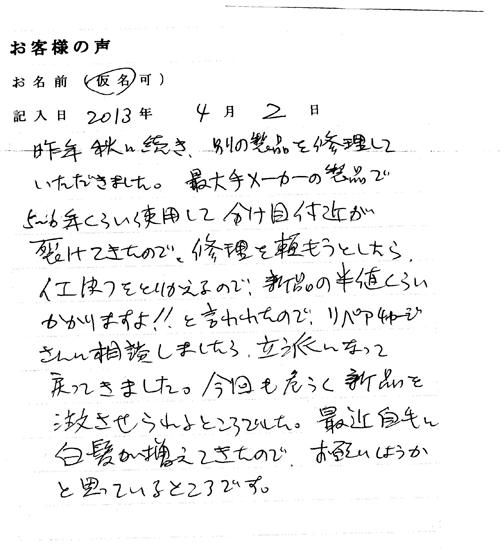 お客様の声
お名前（仮名可）
記入日 2013年 4月 2日
昨年 秋に続き、別の製品を修理して
いただきました。最大手メーカーの製品で
5〜6年くらい使用して分け目付近が
裂けてきたので、修理を頼もうとしたら、
人工 をとりかえるので、新品の半値くらい
かかりますよ!! と言われたので、リペアチャージ
さんに相談しましたら、立派になって
戻ってきました。今回も危うく新品を
注文させられるところでした。最近自毛に
白髪が増えてきたので、お願いしようか
と思っているところです。